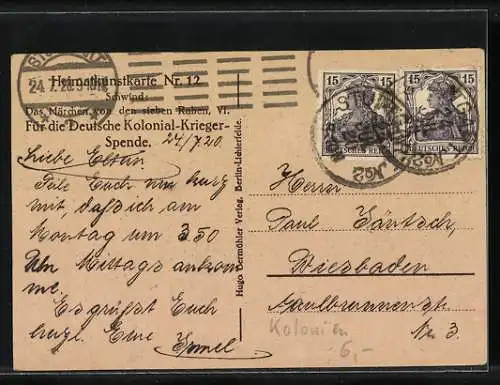 Heimatkunstkarte Nr. 12
24.7.20
Schwind:
Das Märchen von den sieben Raben, VI.
Für die Deutsche Kolonial-Krieger-
Spende.
24/7 20
Liebe Eltern
Teile Euch nur kurz
mit, daß ich am
Montag um 3 50
Uhr Mittags ankom
me.
Es grüßt Euch
herzl. Eure
Hugo Bermühler Verlag, Berlin-Lichterfelde.
15 15
15 15
DEUTSCHES REICH
DEUTSCHES REICH
Herrn
Paul Jäntsch,
Wiesbaden
Faulbrunnenstr.
No 3.
Kolonien
6,-